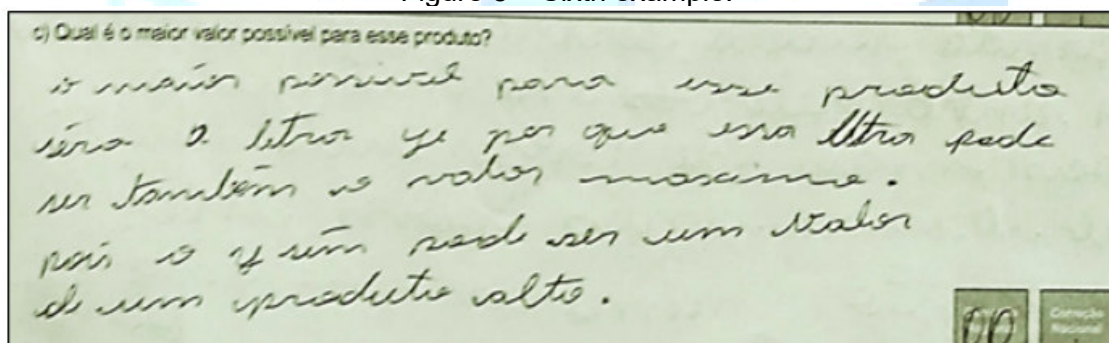 c) Qual é o maior valor possível para esse produto?
o maior possivel para esse produto
séra a letra ye por que essa letra pode
ser também o valor maximo.
pois o y sim pode ser um valor
de um produto alto.
00 Correção Nacional